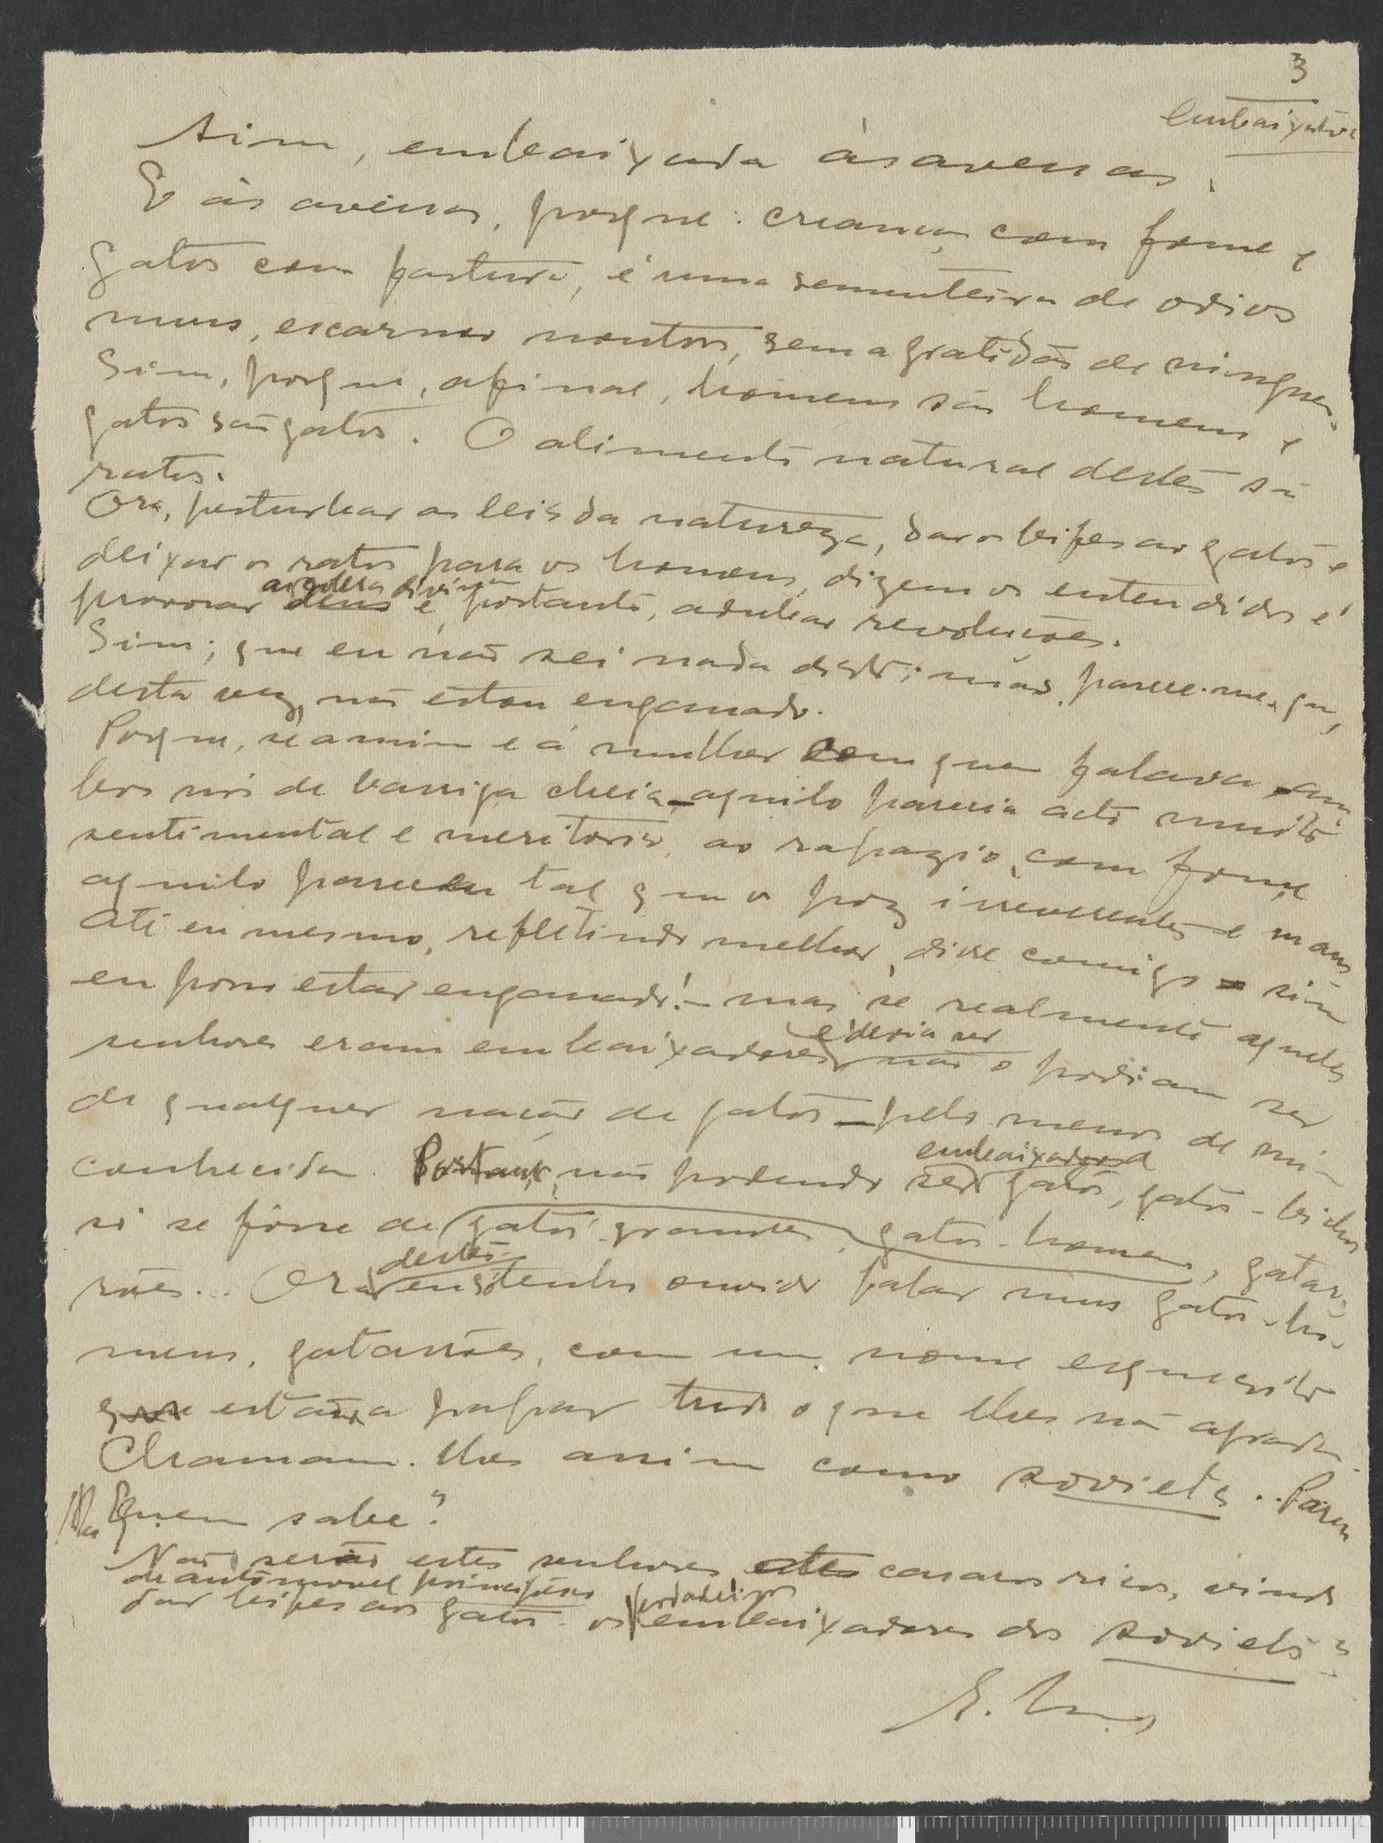 3
Embaixada
Sim, embaixada ás avessas.
E ás avessas, porque: creanças com fome e
gatos com fartura, é uma sementeira de odios
nuns, escarneo noutros, sem a gratidão de ninguem.
Sim, porque, afinal, homens são homens e
gatos são gatos. O alimento natural destes são
ratos.
Ora, perturbar as leis da natureza, dar os bifes aos gatos e
deixar os ratos para os homens, dizem os entendidos é
provocar deus e, portanto, adubar revoluções.
Sim; que eu não sei nada disto; mas, parece-me, que,
desta vez, não estou enganado.
Porque, se a mim e á mulher com quem falava, am-
bos nós de barriga cheia, aquilo parecia acto muito
sentimental e meritorio, ao rapazio, com fome,
aquilo pareceu tal que o poz irreverente e mau
Até eu mesmo, refletindo melhor, disse comigo sim
eu posso estar enganado! mas se realmente aqueles
e devia ser
senhores eram embaixadores não o podiam ser
de qualquer nação de gatos pelo menos de mim
embaixadores
conhecida. Portanto, não podendo ser gatos, gatos-bichos
só se fôsse de gatos-grandes, gatos-homens, gatar-
destes
rões... Ora eu tenho ouvido falar nuns gatos-ho-
mens, gatarrões, com um nome esquesito
que estão a papar tudo o que lhes não agrada.
Chamam-lhes assim como soviets..
Quem sabe?
Não serão estes senhores estes casacos ricos, vindo
de automovel
dar bifes aos gatos os embaixadores dos soviets?
verdadeiros